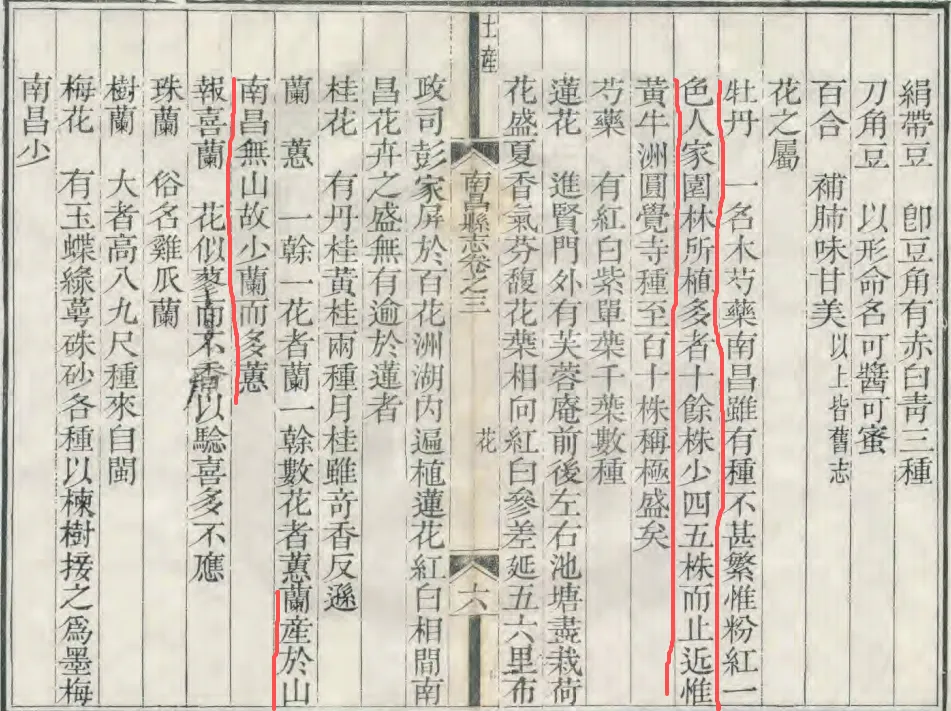 絹帶豆　卽豆角有赤白靑三種
刀角豆　以形命名可醬可蜜
百合　補肺味甘美以上皆舊志
花之屬
牡丹　一名木芍藥南昌雖有種不甚繁惟粉紅一
色人家園林所植多者十餘株少四五株而止近惟
黃牛洲圓覺寺種至百十株稱極盛矣
芍藥　有紅白紫單葉千葉數種
蓮花　進賢門外有芙蓉庵前後左右池塘盡栽荷
花盛夏香氣芬馥花葉相向紅白參差延五六里布
土產
南昌縣志卷之三
花
六
政司彭家屏於百花洲湖內遍植蓮花紅白相間南
昌花卉之盛無有逾於蓮者
桂花　有丹桂黃桂兩種月桂雖奇香反遜
蘭蕙　一榦一花者蘭一榦數花者蕙蘭產於山
南昌無山故少蘭而多蕙
報喜蘭　花似蓼而不香以驗喜多不應
珠蘭　俗名雞爪蘭
樹蘭　大者高八九尺種來自閩
梅花　有玉蝶綠萼硃砂各種以楝樹接之爲墨梅
南昌少